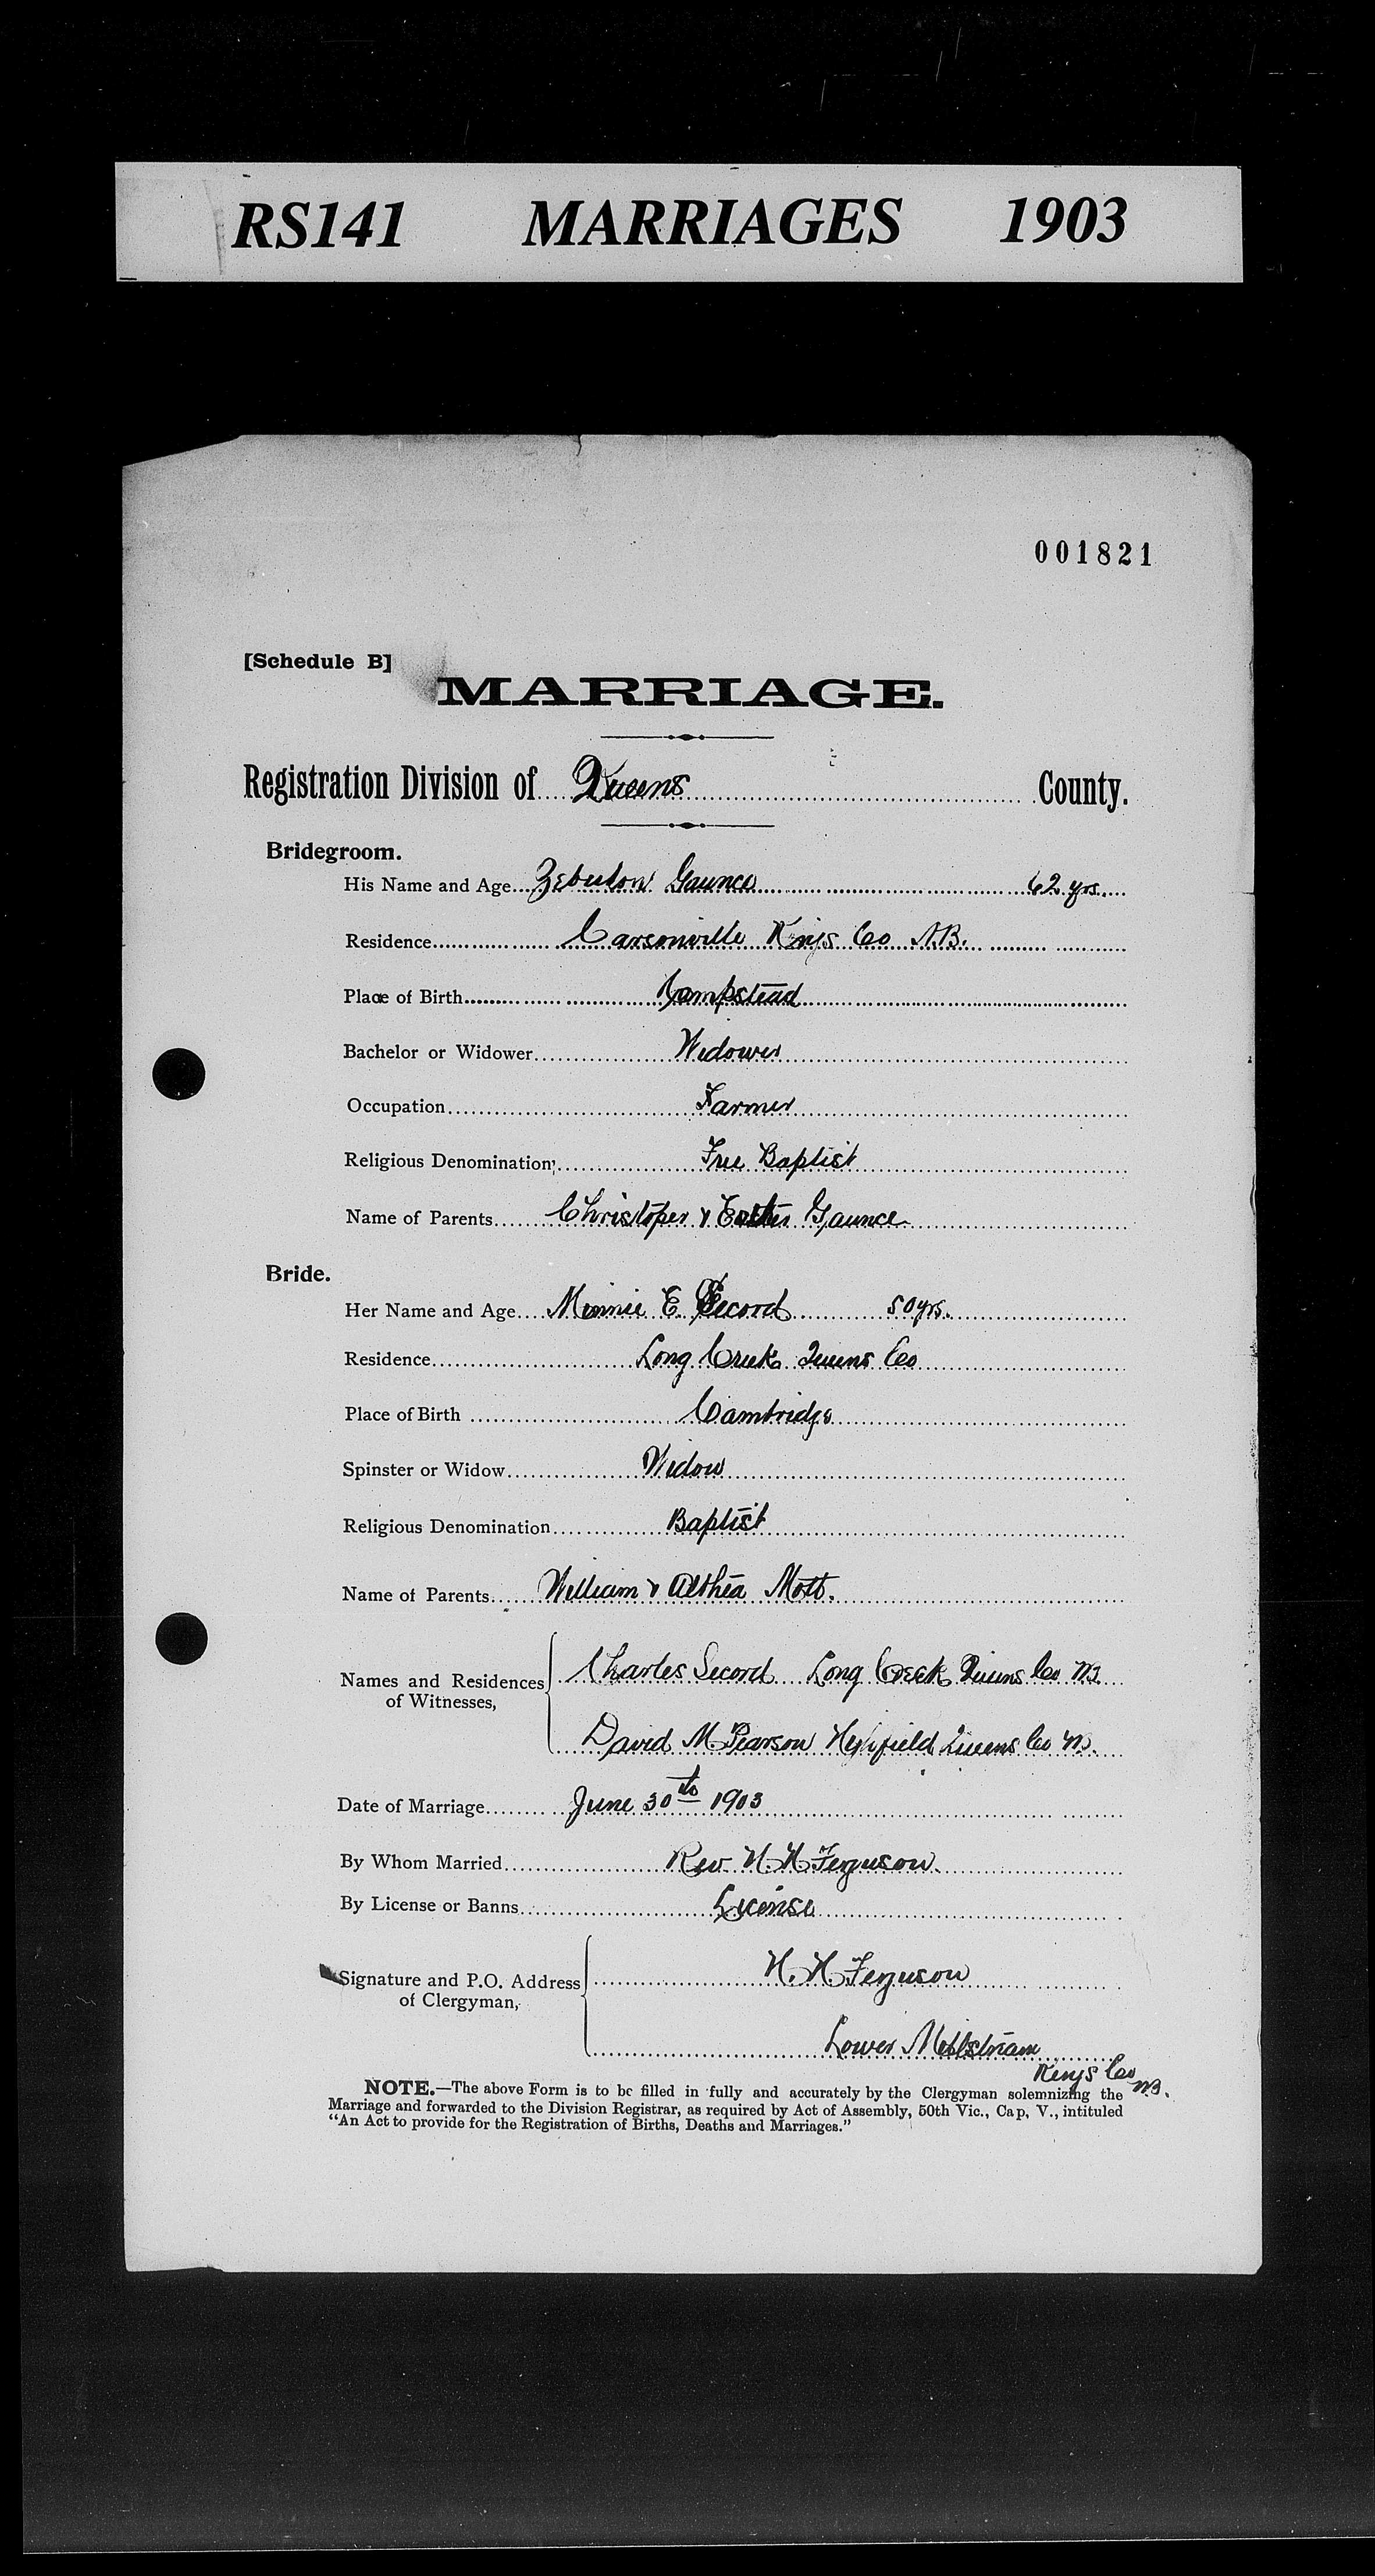 RS141 MARRIAGES 1903
001821
[Schedule B]
MARRIAGE.
Registration Division of Queens County.
Bridegroom.
His Name and Age Zebulon Gaunce 62 yrs.
Residence Carsonville Kings Co N.B.
Place of Birth Hampstead
Bachelor or Widower Widower
Occupation Farmer
Religious Denomination Free Baptist
Name of Parents Christoper & Esther Gaunce
Bride.
Her Name and Age Minnie E Secord 50 yrs.
Residence Long Creek Queens Co
Place of Birth Cambridge
Spinster or Widow Widow
Religious Denomination Baptist
Name of Parents William & Althea Mott.
Names and Residences of Witnesses, Charles Secord Long Creek Queens Co NB
David M Pearson Highfield Queens Co NB.
Date of Marriage June 30th 1903
By Whom Married Rev H. H Ferguson
By License or Banns License
Signature and P.O. Address of Clergyman, H. H Ferguson
Lower Millstream
Kings Co NB.
NOTE.—The above Form is to be filled in fully and accurately by the Clergyman solemnizing the
Marriage and forwarded to the Division Registrar, as required by Act of Assembly, 50th Vic., Cap, V., intituled
"An Act to provide for the Registration of Births, Deaths and Marriages."